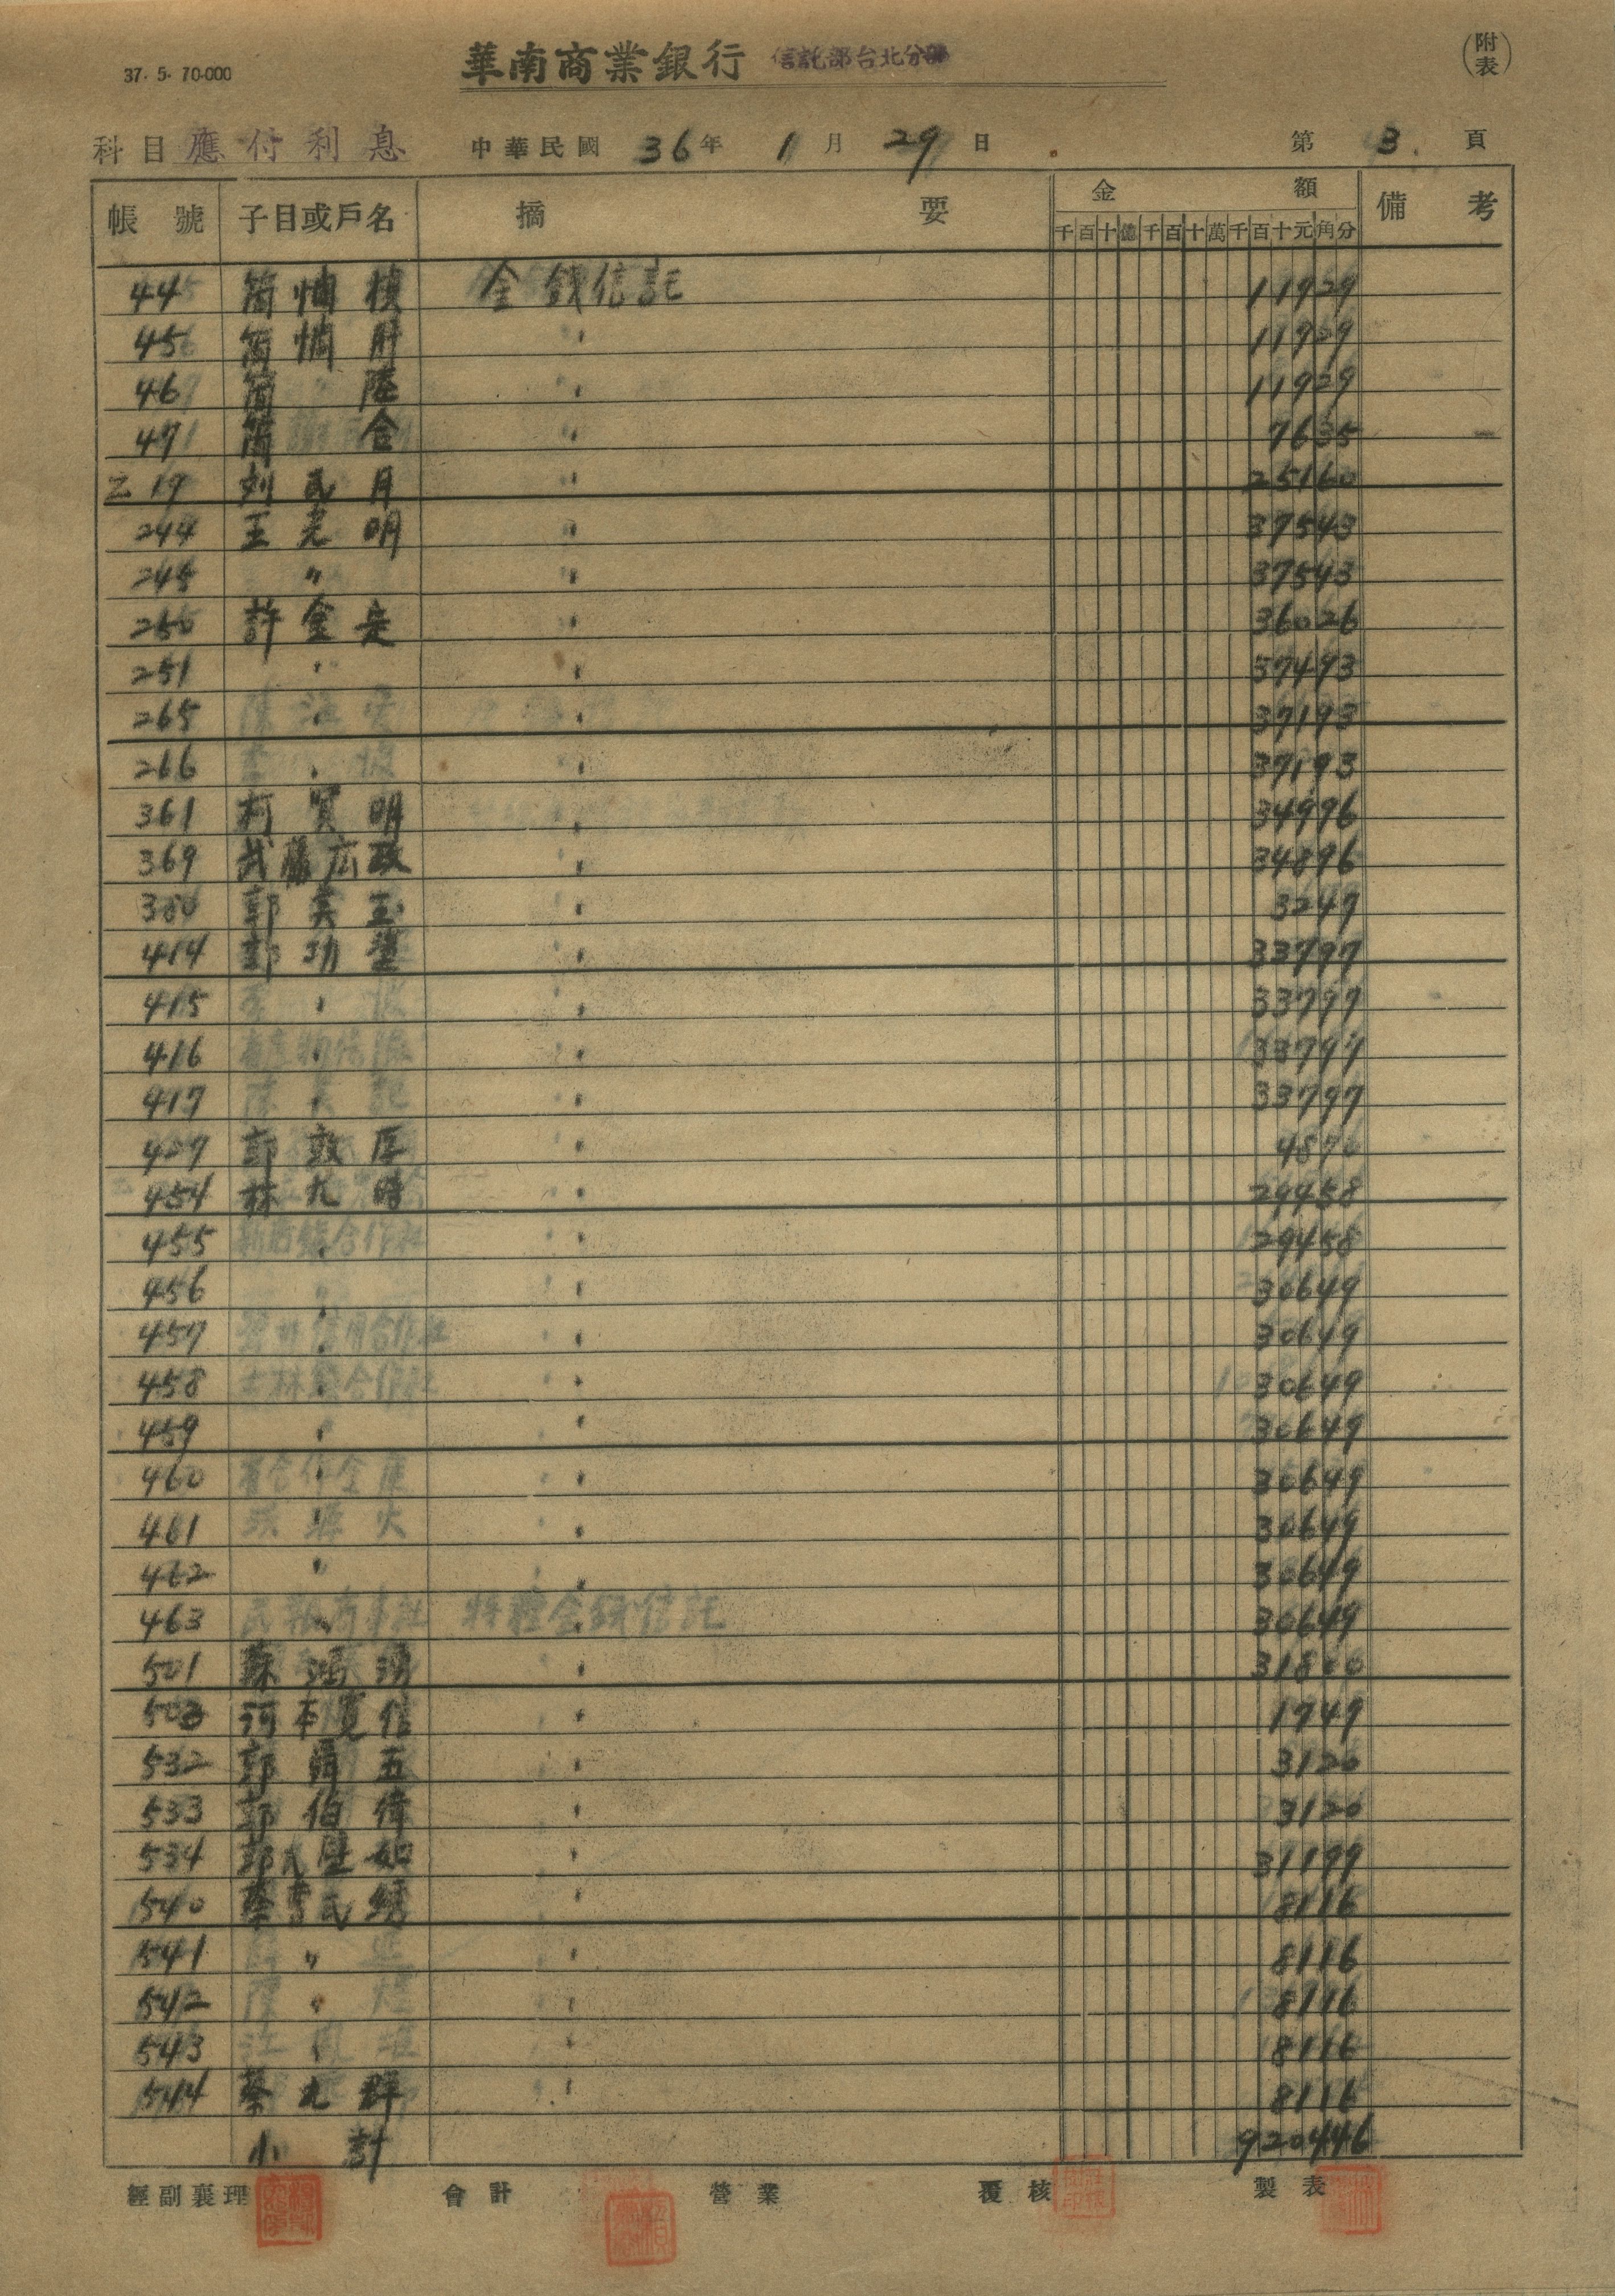 37. 5. 70.000
華南商業銀行 信託部台北分部
(附表)
科目 應付利息 中華民國 36年 1月 29日 第 3 頁
帳號 子目或戶名 摘要 金額 備考
千百十億千百十萬千百十元角分
44 簡 金錢信託 11929
45 簡 〃 11929
46 簡 〃 11929
47 簡 合 〃 7635
乙19 刘氏月 〃 25160
244 王光明 〃 37543
245 〃 〃 37543
250 許金 〃 36026
251 〃 〃 37493
265 〃 〃 37193
266 〃 〃 37193
361 柯賢明 〃 34996
369 武藤広政 〃 34896
380 郭美玉 〃 3247
414 郭功塗 〃 33797
415 〃 〃 33797
416 〃 〃 33797
417 〃 〃 33797
427 郭敦厚 〃 4870
454 林九 〃 29458
455 〃 〃 29458
456 〃 〃 30649
457 〃 〃 30649
458 〃 〃 30649
459 〃 〃 30649
460 〃 〃 30649
461 〃 〃 30649
462 〃 〃 30649
463 〃 〃 30649
501 蘇鴻 〃 31800
503 河本寛信 〃 1749
532 郭 五 〃 3120
533 郭伯偉 〃 3120
534 郭氏 如 〃 31199
540 蔡曹氏綉 〃 8116
541 〃 〃 8116
542 〃 〃 8116
543 〃 〃 8116
544 蔡九群 〃 8116
小計 920446
經副襄理 會計 營業 覆核 製表